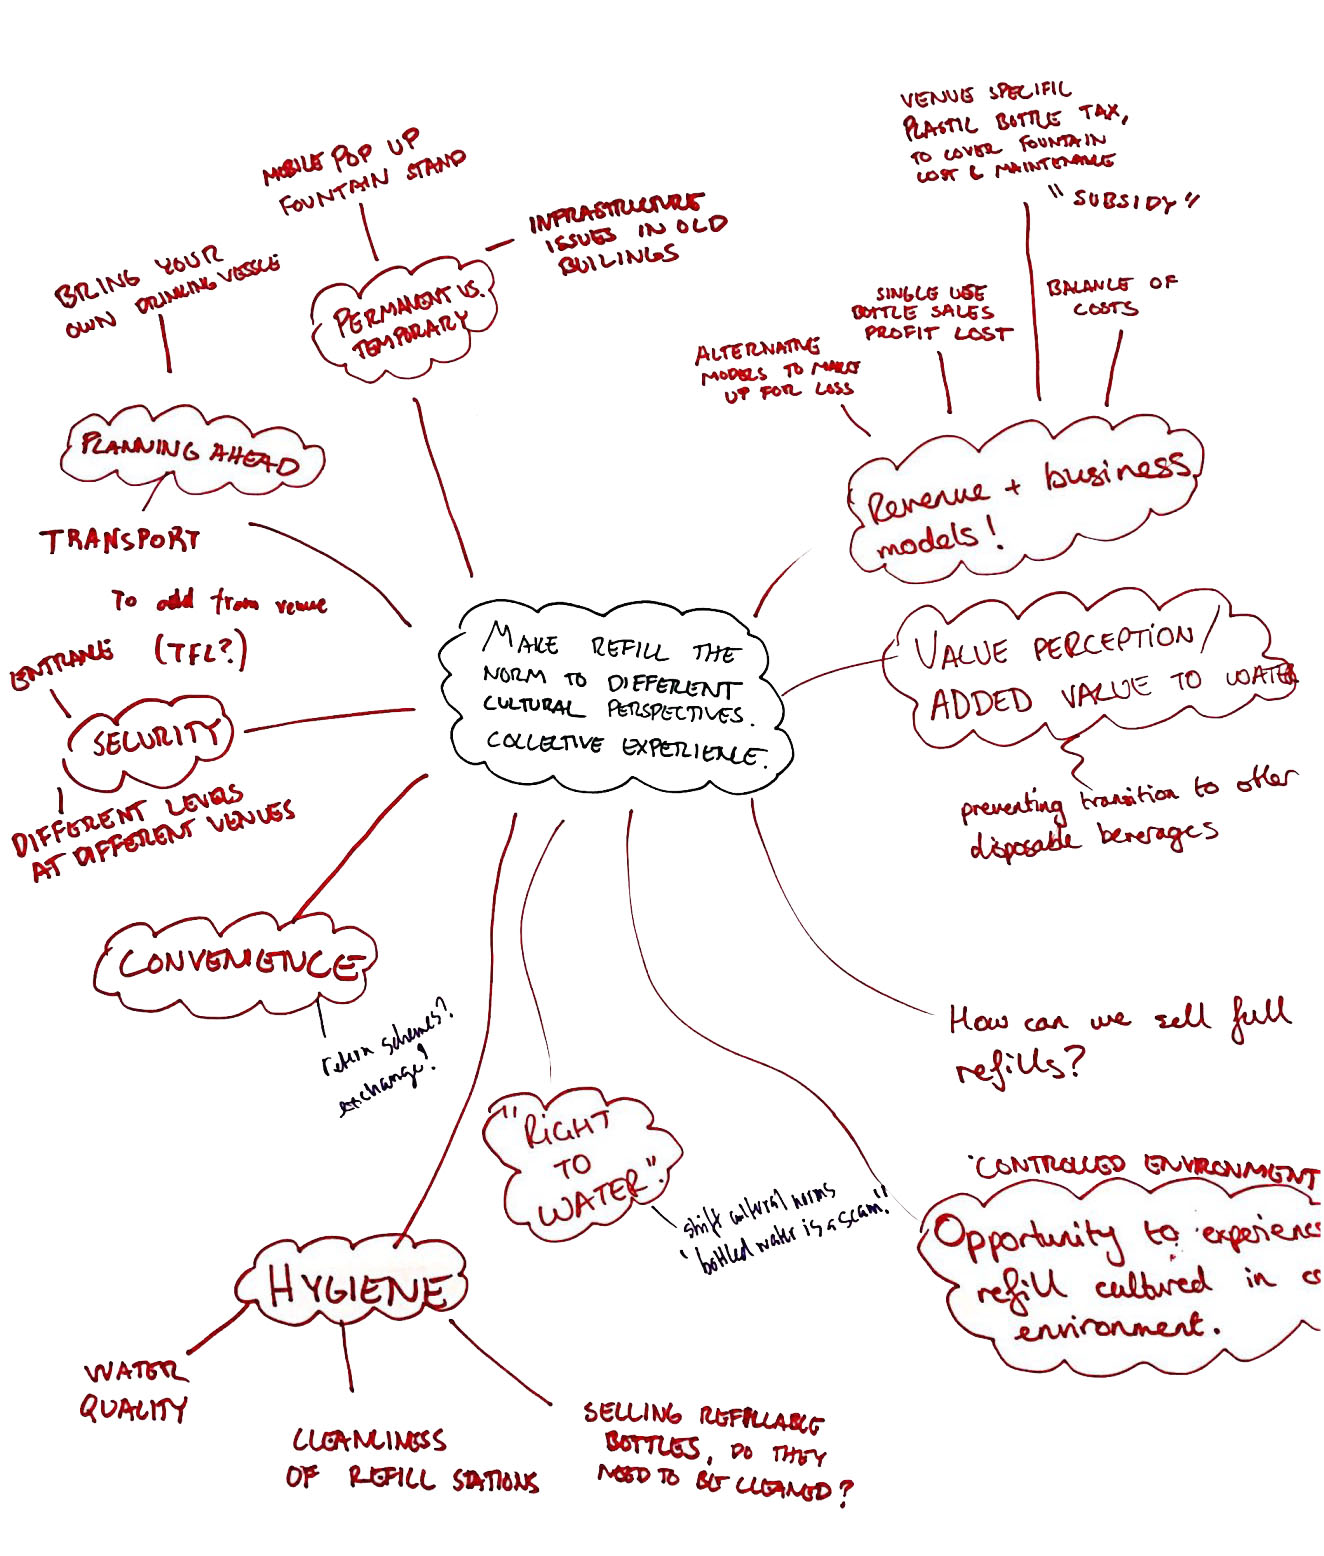 VENUE SPECIFIC
PLASTIC BOTTLE TAX,
TO COVER FOUNTAIN
COST & MAINTENANCE
"SUBSIDY"
MOBILE POP UP
FOUNTAIN STAND
INFRASTRUCTURE
ISSUES IN OLD
BUILINGS
BRING YOUR
OWN DRINKING VESSLE
PERMANENT VS.
TEMPORARY
SINGLE USE
BOTTLE SALES
PROFIT LOST
BALANCE OF
COSTS
ALTERNATIVE
MODELS TO MAKE
UP FOR LOSS
PLANNING AHEAD
TRANSPORT
To add from venue
(TFL?)
Revenue + business
models!
ENTRANCE
SECURITY
DIFFERENT LEVELS
AT DIFFERENT VENUES
MAKE REFILL THE
NORM TO DIFFERENT
CULTURAL PERSPECTIVES.
COLLECTIVE EXPERIENCE.
VALUE PERCEPTION/
ADDED VALUE TO WATER
preventing transition to other
disposable beverages
CONVENIENCE
return schemes?
exchange!
How can we sell full
refills?
"RIGHT
TO
WATER".
shift cultural norms
"bottled water is a scam."
'CONTROLLED ENVIRONMENT
Opportunity to experience
refill cultured in co
environment.
HYGIENE
WATER
QUALITY
CLEANLINESS
OF REFILL STATIONS
SELLING REFILLABLE
BOTTLES, DO THEY
NEED TO BE CLEANED?